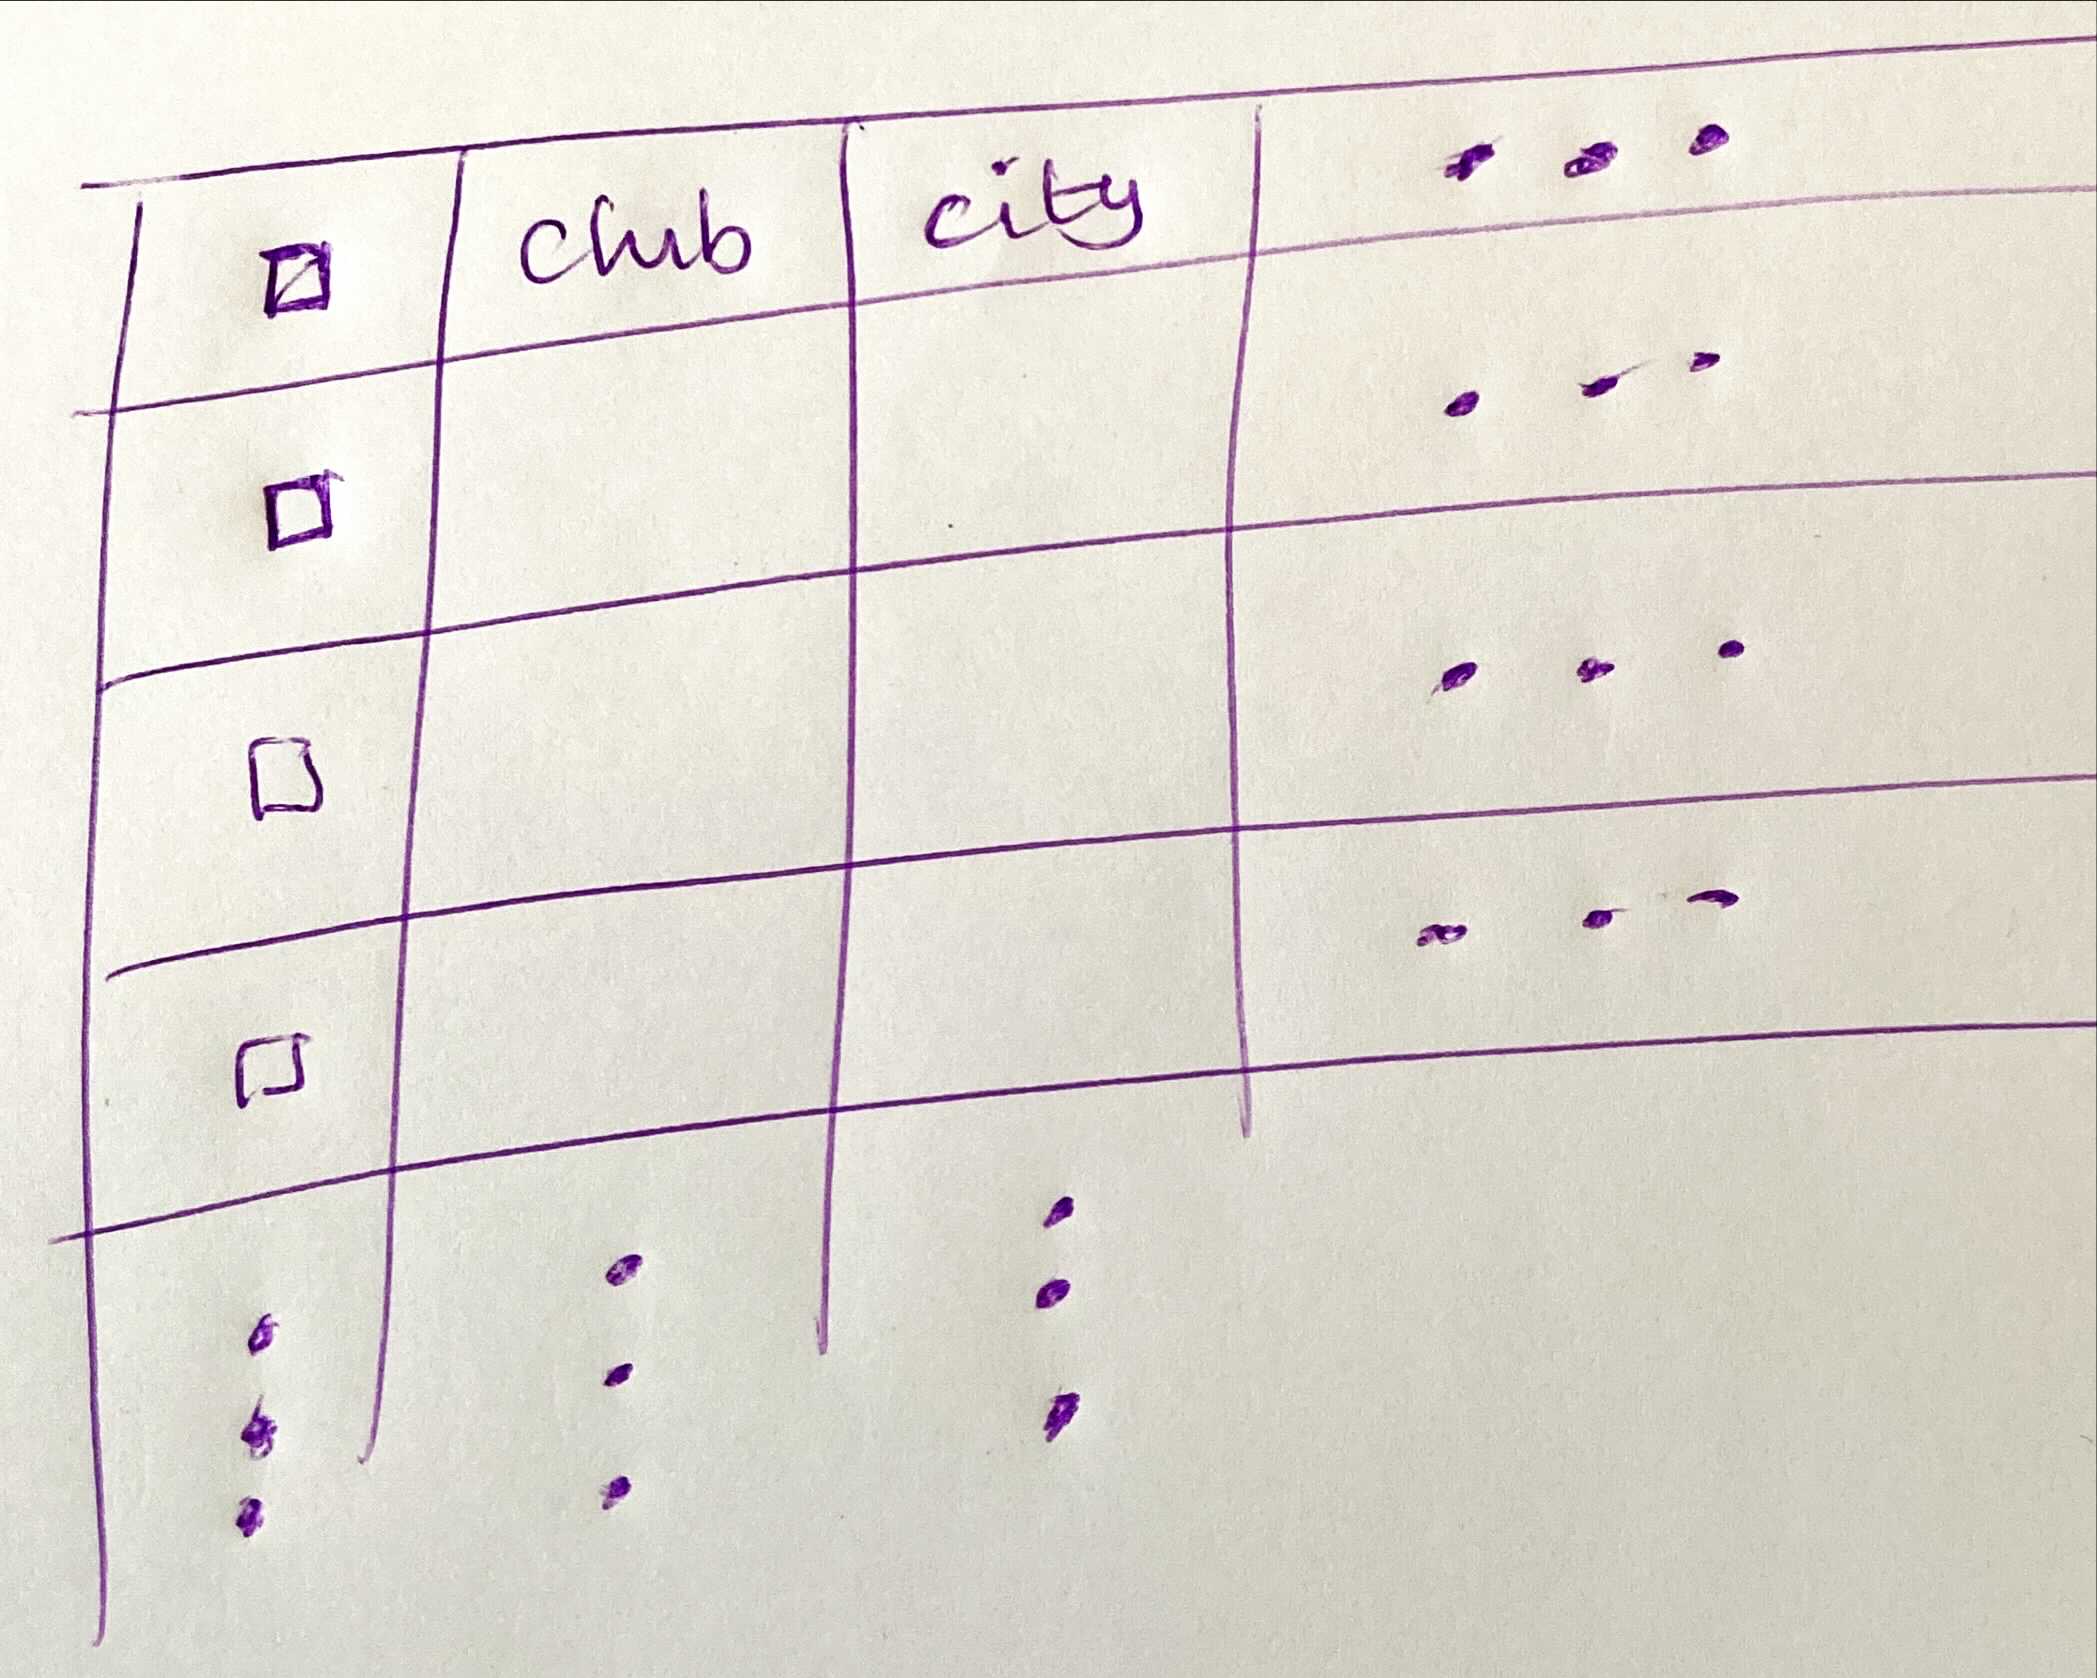 club city